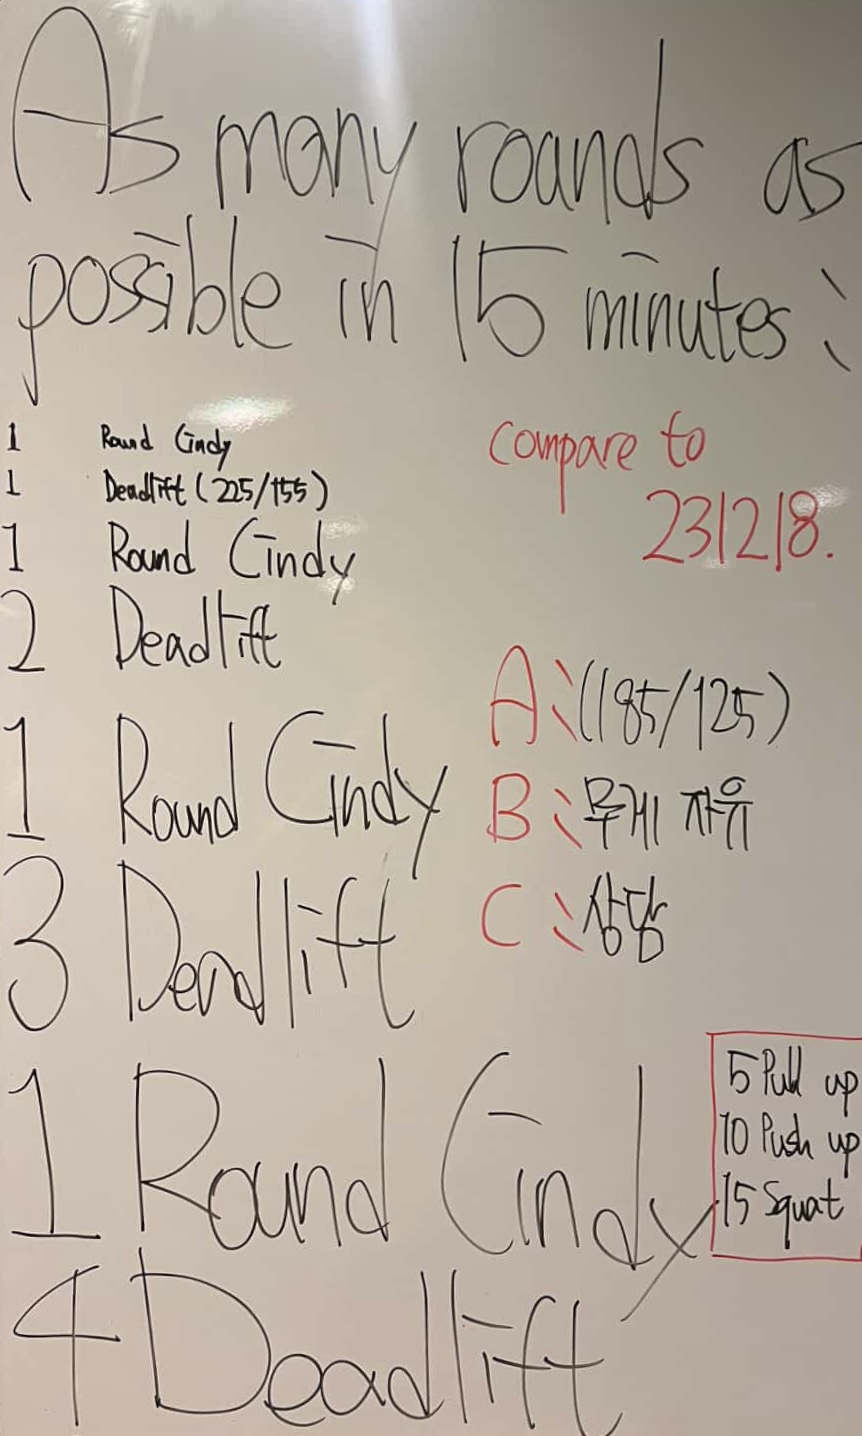 As many rounds as
possible in 15 minutes:
1 Round Cindy
1 Deadlift (225/155)
1 Round Cindy
2 Deadlift
1 Round Cindy
3 Deadlift
1 Round Cindy
4 Deadlift
compare to
231218.
A: (185/125)
B: 무게 자유
C: 상담
5 Pull up
10 Push up
15 Squat